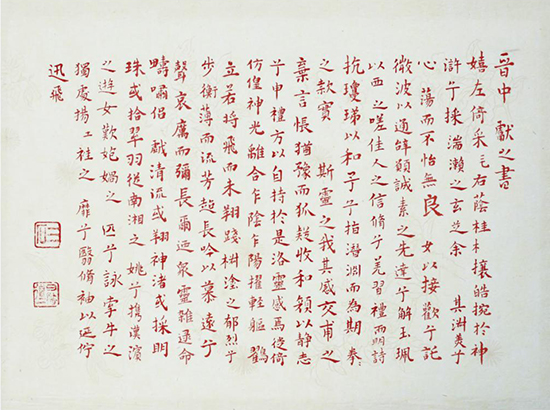 晉中 獻之書
嬉左倚采毛右蔭桂 攘皓捥於神
滸兮採湍瀨之玄芝余 其淑美兮
心 蕩而不怡無良 女以接歡兮託
微波以通辭願誠素之先達兮解玉珮
以西之嗟佳人之信脩兮羌習禮而明詩
抗瓊珶以和予兮指潛淵而為期拳
之款實 斯靈之我其感交甫之
棄言悵猶豫而狐疑收和顏以靜志
兮申禮方以自持於是洛靈感焉徙倚
仿偟神光離合乍陰乍陽擢輕軀 鶴
立若將飛而未翔踐椒塗之郁烈兮
步衡薄而流芳超長吟以慕遠兮
聲哀厲而彌長爾迺衆靈雜遝命
疇嘯侶 戲清流或翔神渚或採明
珠或拾翠羽從南湘之 姚兮攜漢濱
之遊女歎匏媧之 匹兮詠牽牛之
獨處揚 袿之 靡兮翳脩袖以延佇
迅飛